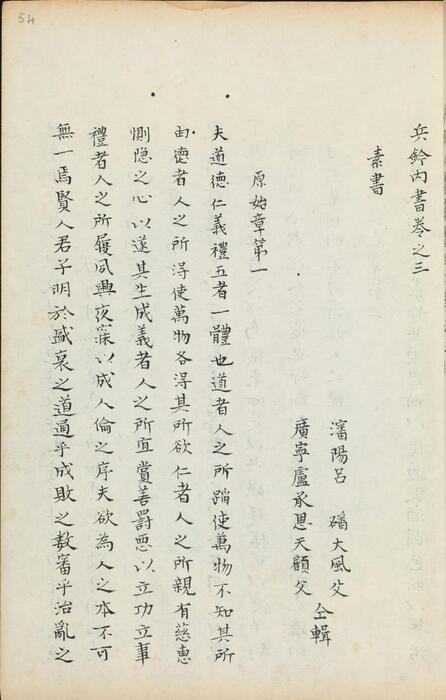 54
兵鈐內書卷之三
素書
瀋陽呂磻大風父
廣寧盧承恩天顧父
仝輯
原始章第一
夫道德仁義禮五者一體也道者人之所蹈使萬物不知其所
由德者人之所得使萬物各得其所欲仁者人之所親有慈惠
惻隐之心以遂其生成義者人之所宜賞善罰惡以立功立事
禮者人之所履夙興夜寐以成人倫之序夫欲為人之本不可
無一焉賢人君子明於盛衰之道通乎成敗之數審乎治亂之